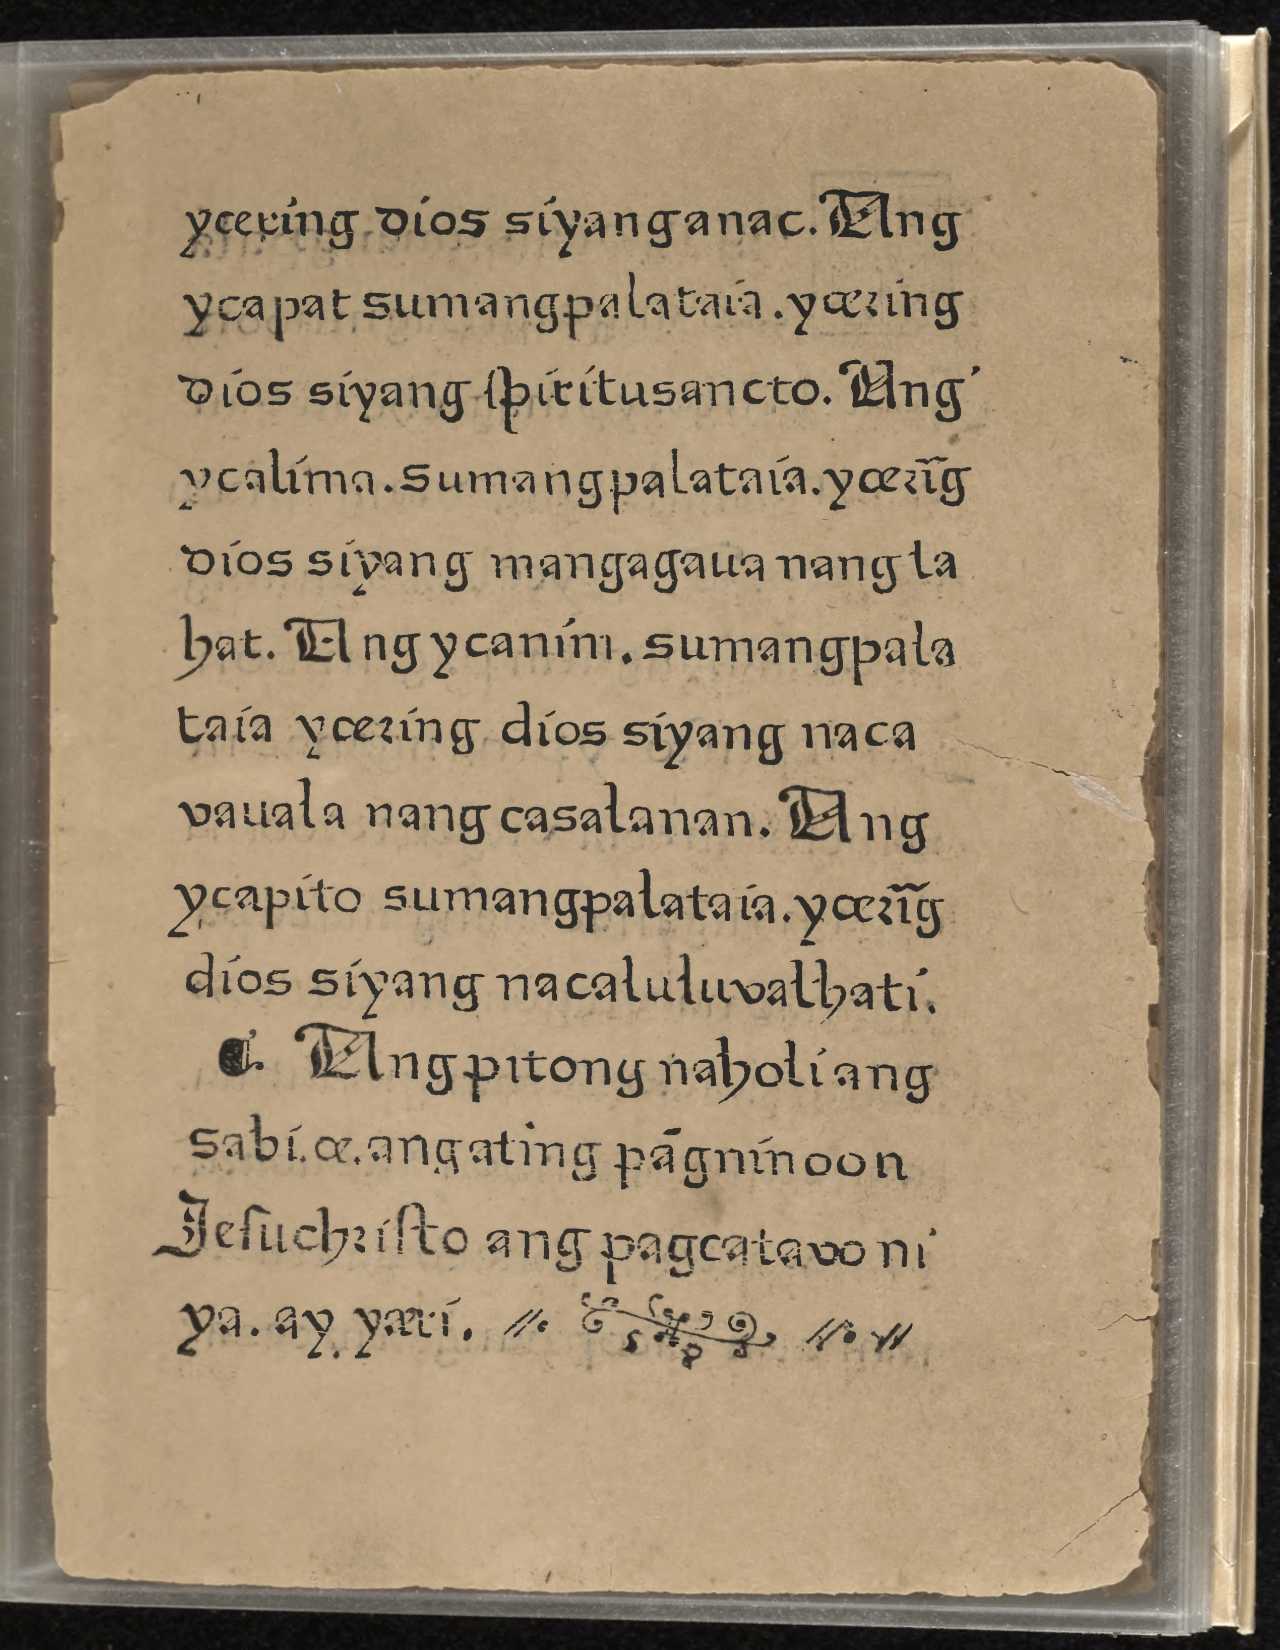 ycering dios siyanganac. Ang
ycapat sumangpalataia. ycering
dios siyang spiritusancto. Ang
ycalima. sumangpalataia. ycerĩg
dios siyang mangagaua nang la
hat. Ang ycanim. sumangpala
taia ycering dios siyang naca
vauala nang casalanan. Ang
ycapito sumangpalataia. ycerĩg
dios siyang nacaluluvalhati.
¶. Ang pitong naholi ang
sabi. œ. ang ating pãgninoon
Jesuchristo ang pagcatavo ni
ya. ay. yæri. //.  //. //